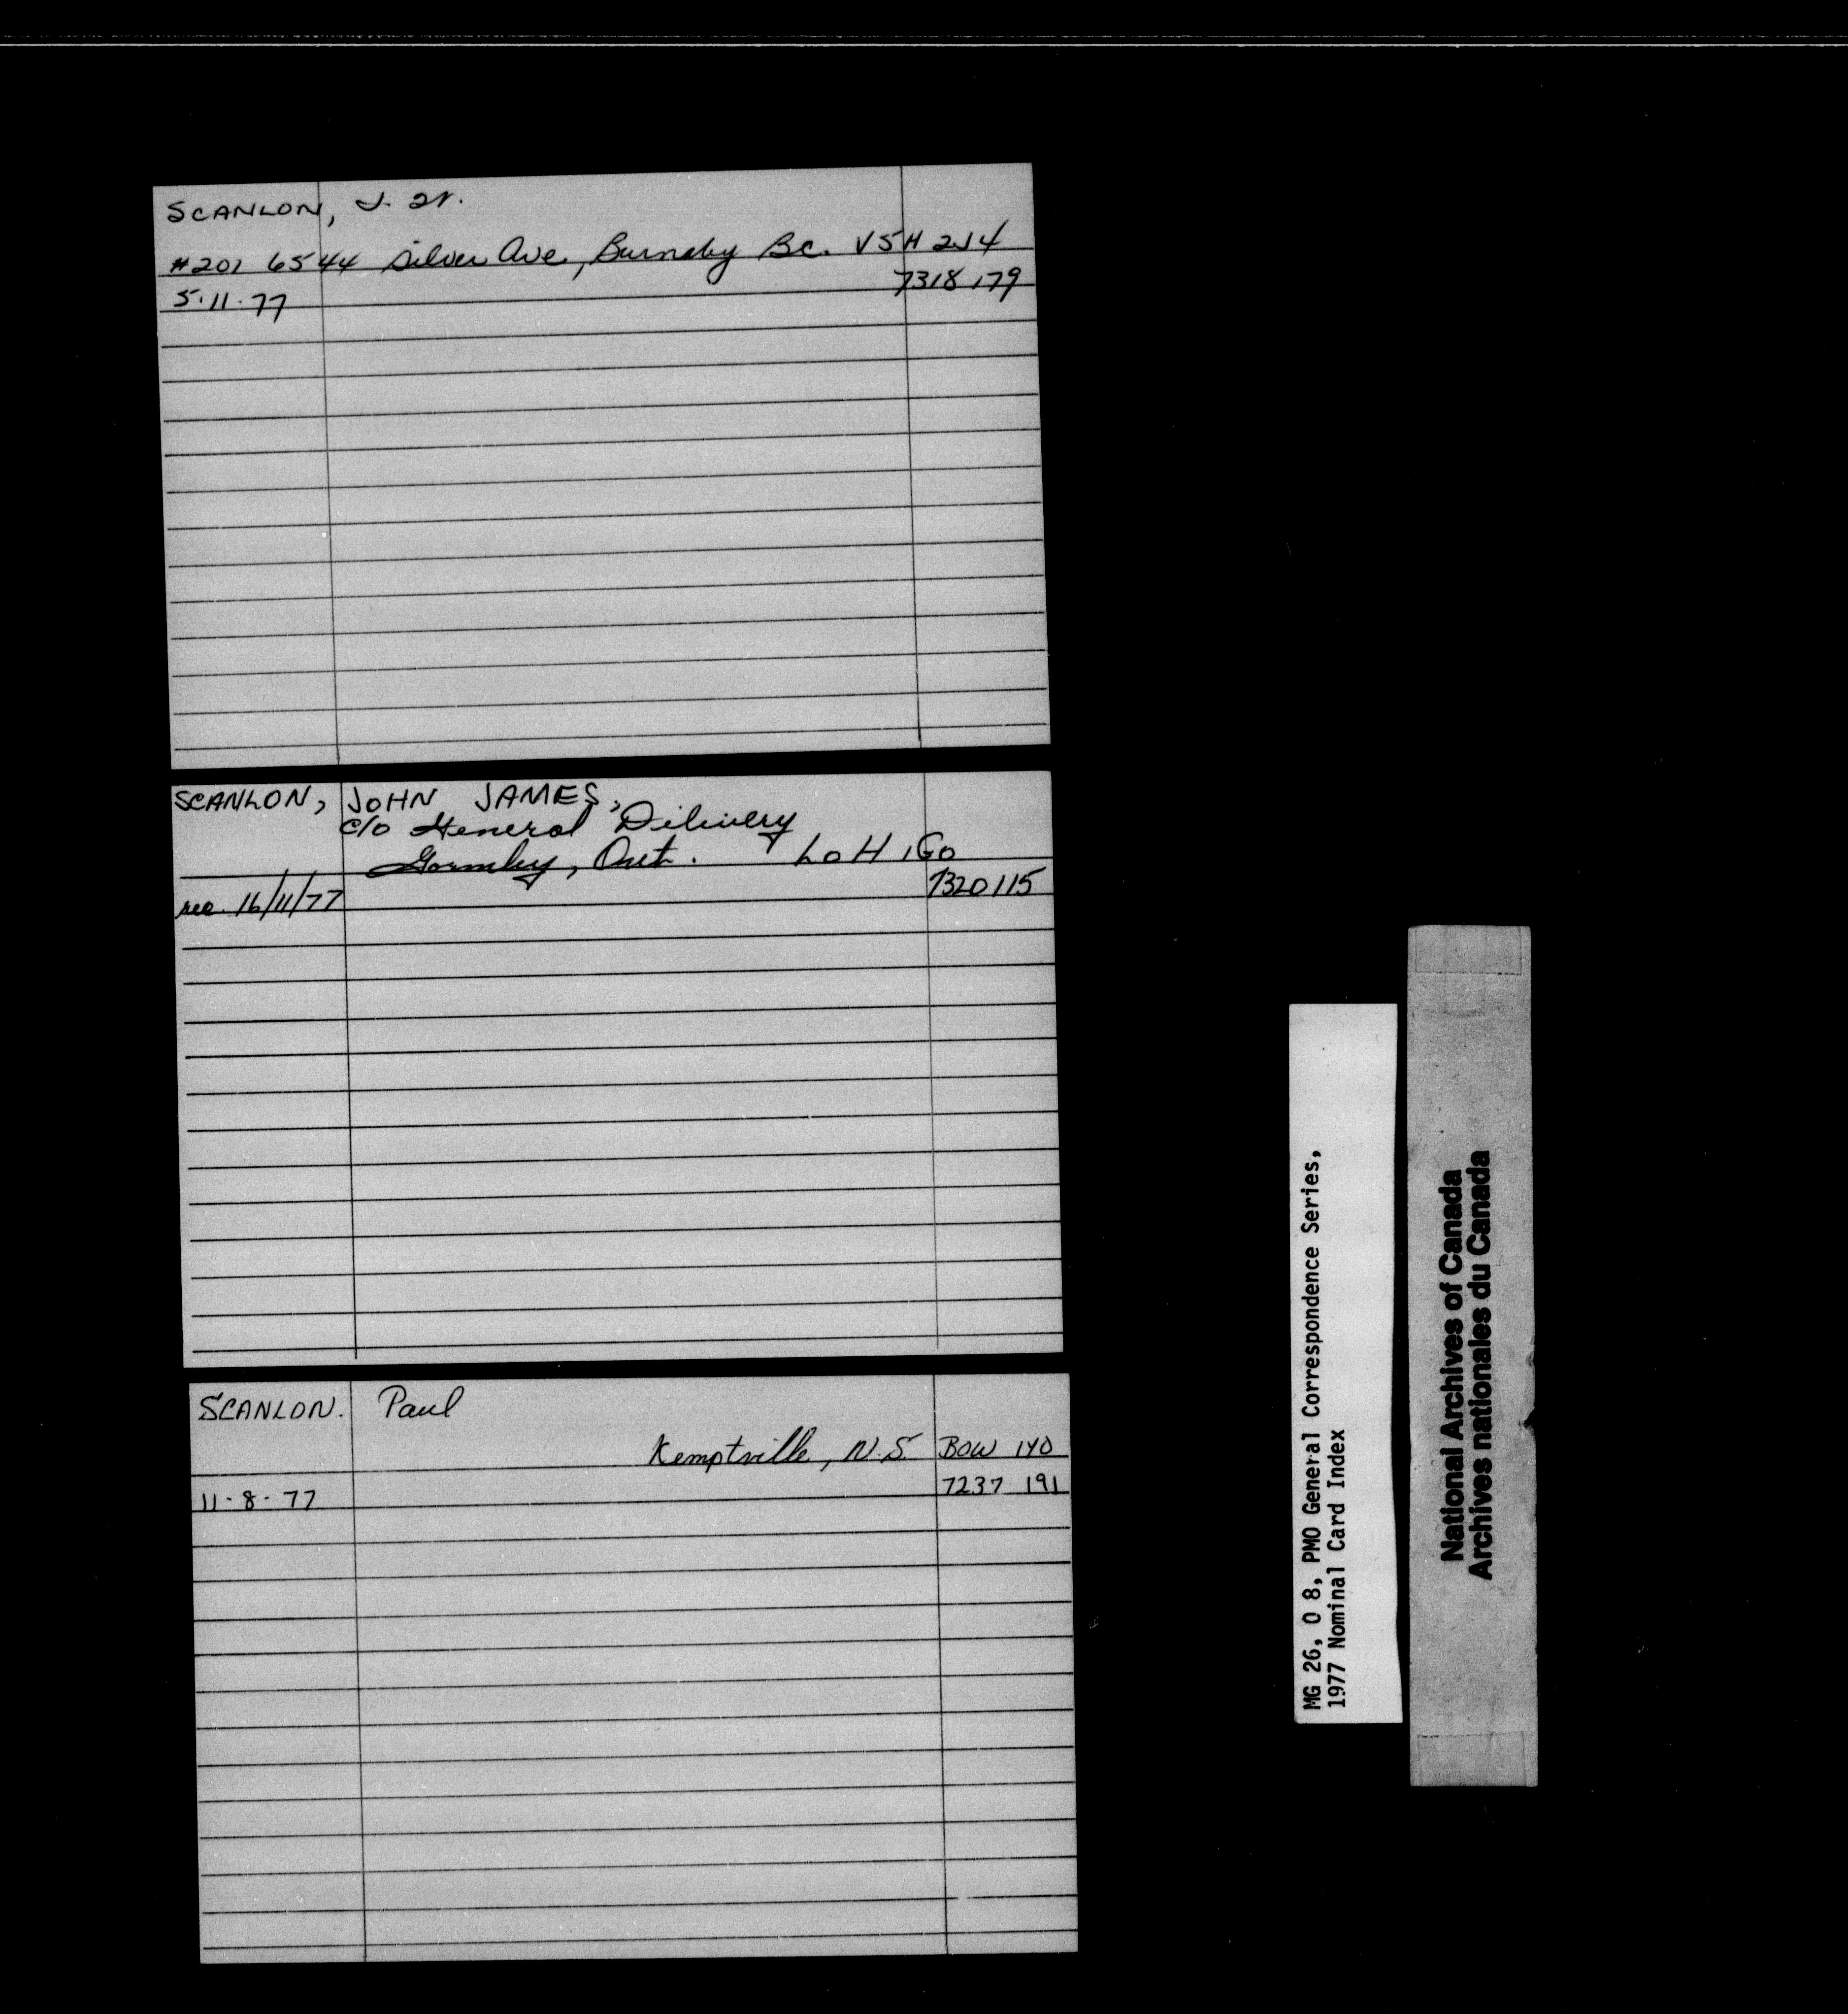 SCANLON, J. W.
#201 6544 Silver Ave, Burnaby Bc. V5H 2J4
5.11.77 7318179
SCANLON, JOHN JAMES,
c/o General Delivery
Gormley, Ont. L0H 1G0
rec. 16/11/77 7320115
SCANLON. Paul
Kemptville, N.S. B0W 1Y0
11-8-77 7237 191
MG 26, O 8, PMO General Correspondence Series,
1977 Nominal Card Index
National Archives of Canada
Archives nationales du Canada